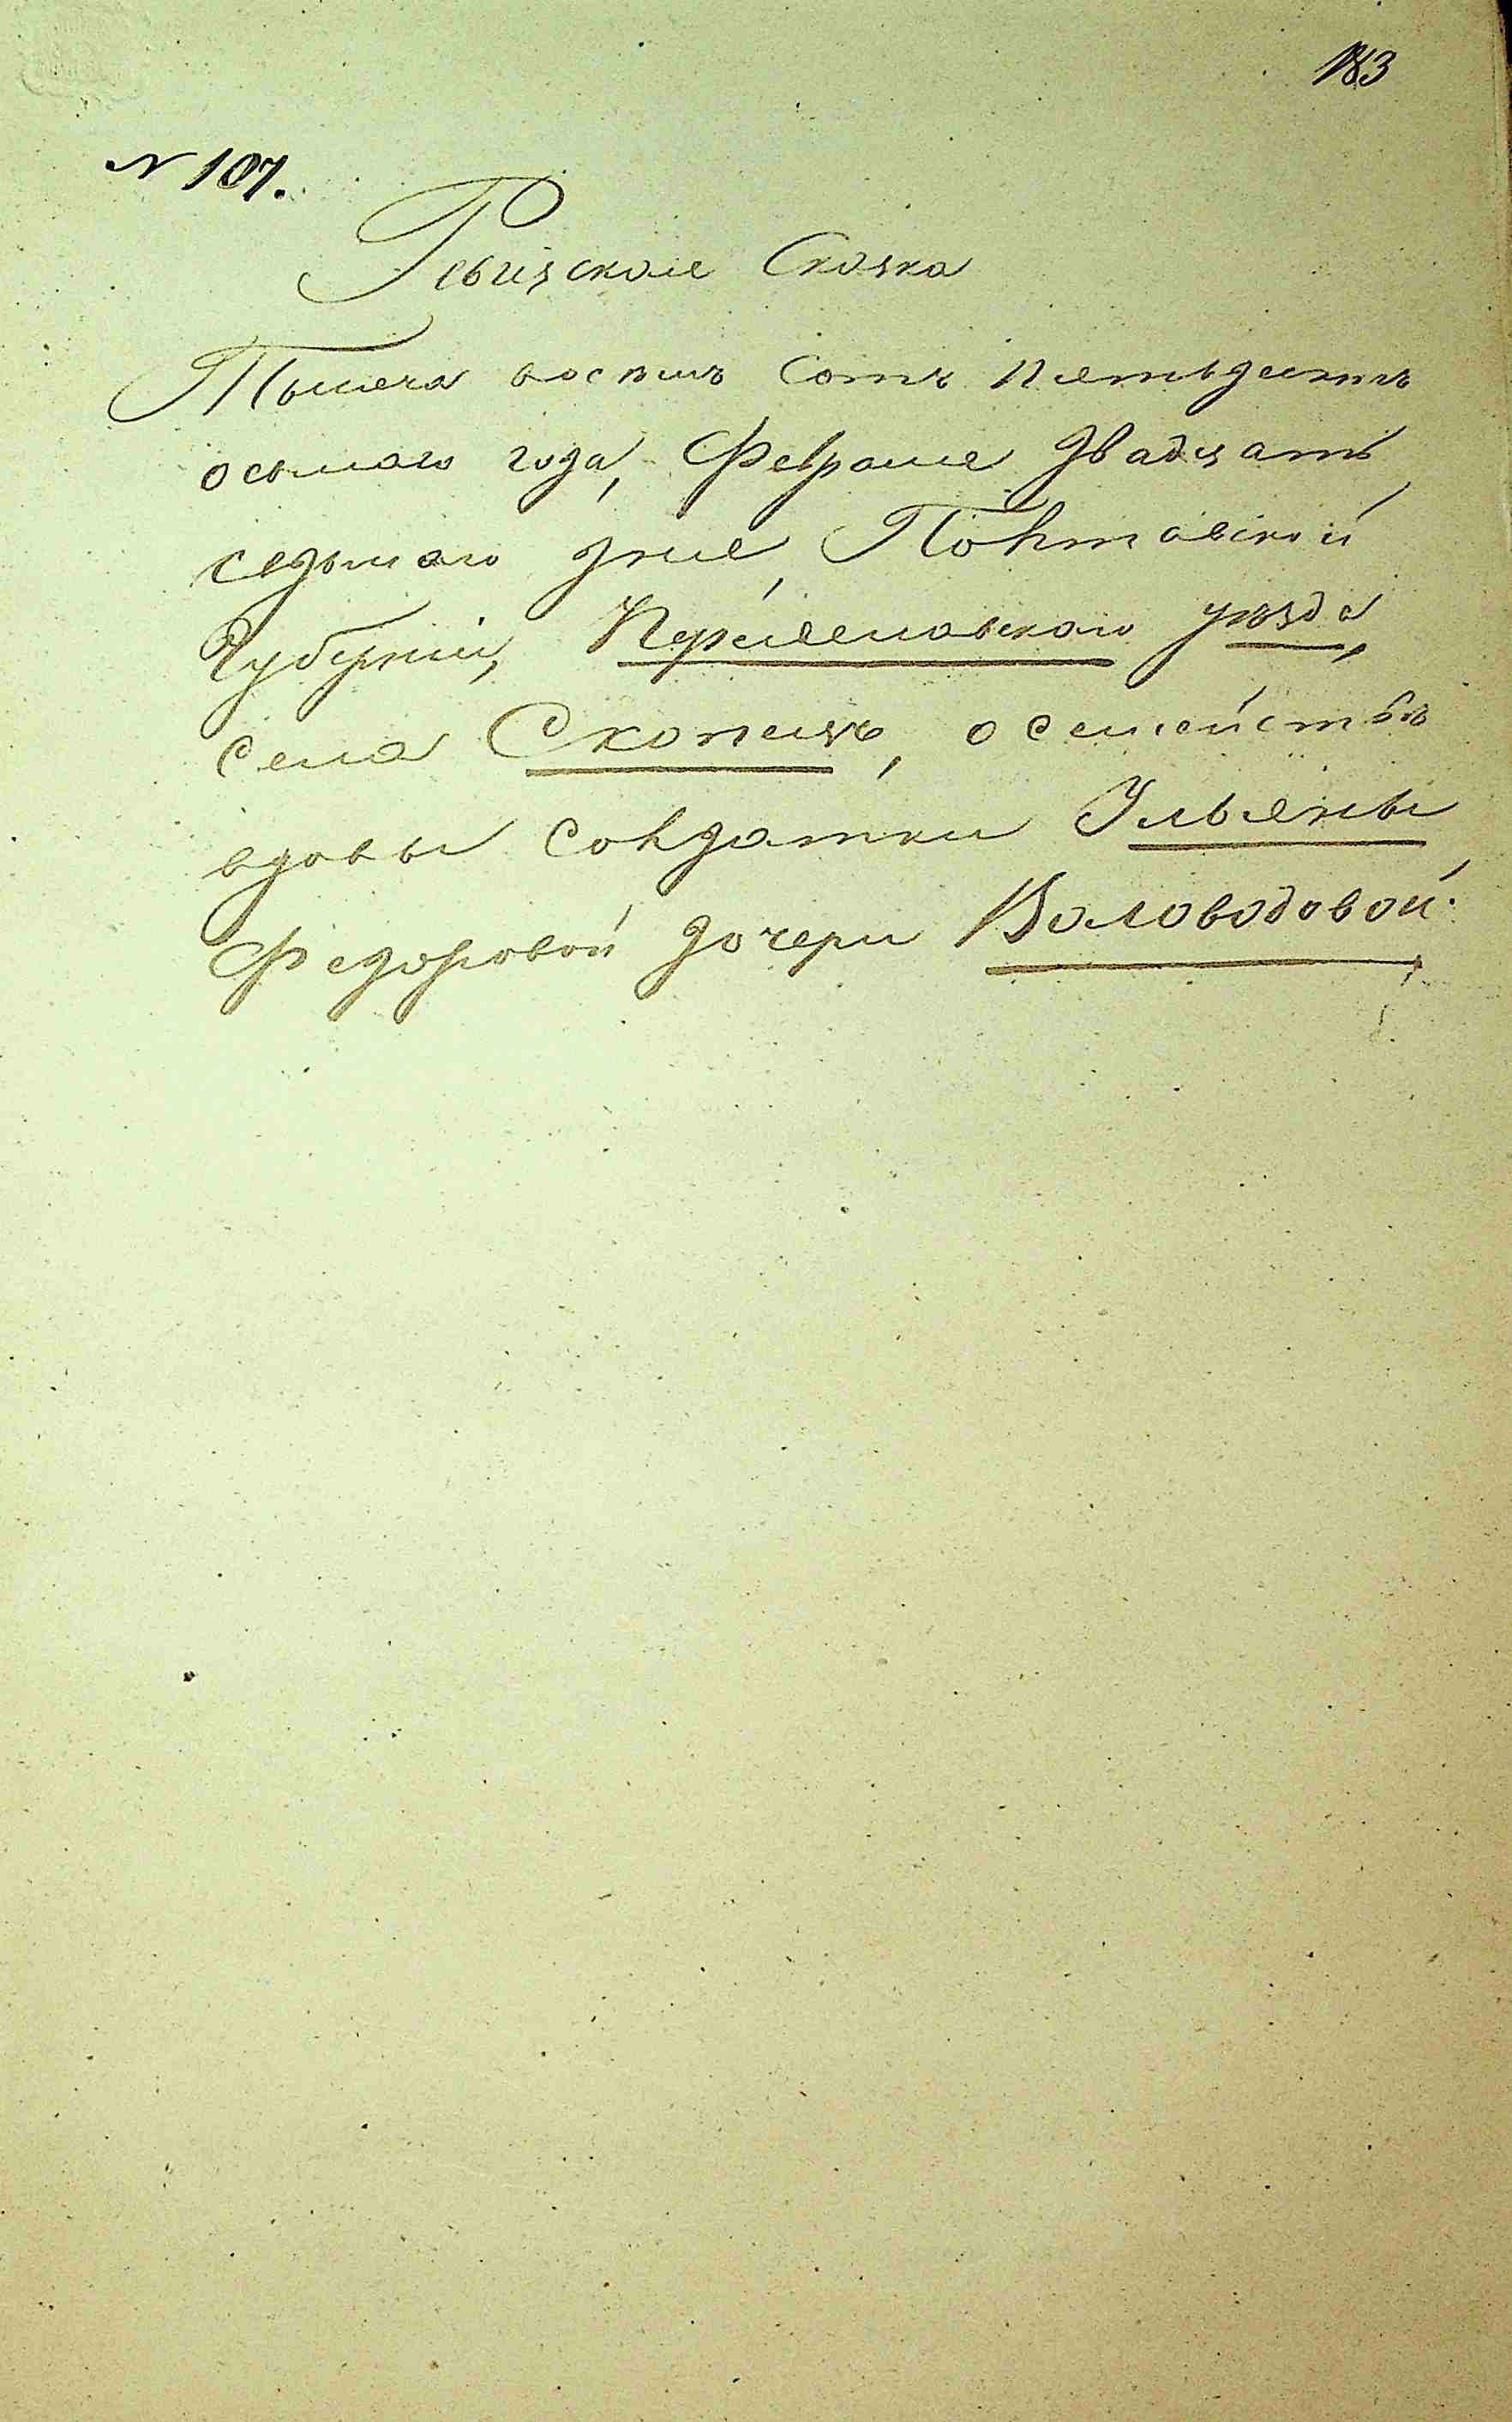 183
N 107.
Ревизская Сказка
Тысяча восемь сотъ пятьдесятъ
осьмаго года, Февраля двадцать
седьмаго дня, Полтавской
Губерніи, Переяславскаго уезда,
села Скопецъ, о семействѣ
вдовы солдатки Ульяны
Федоровой дочери Воловодовой.